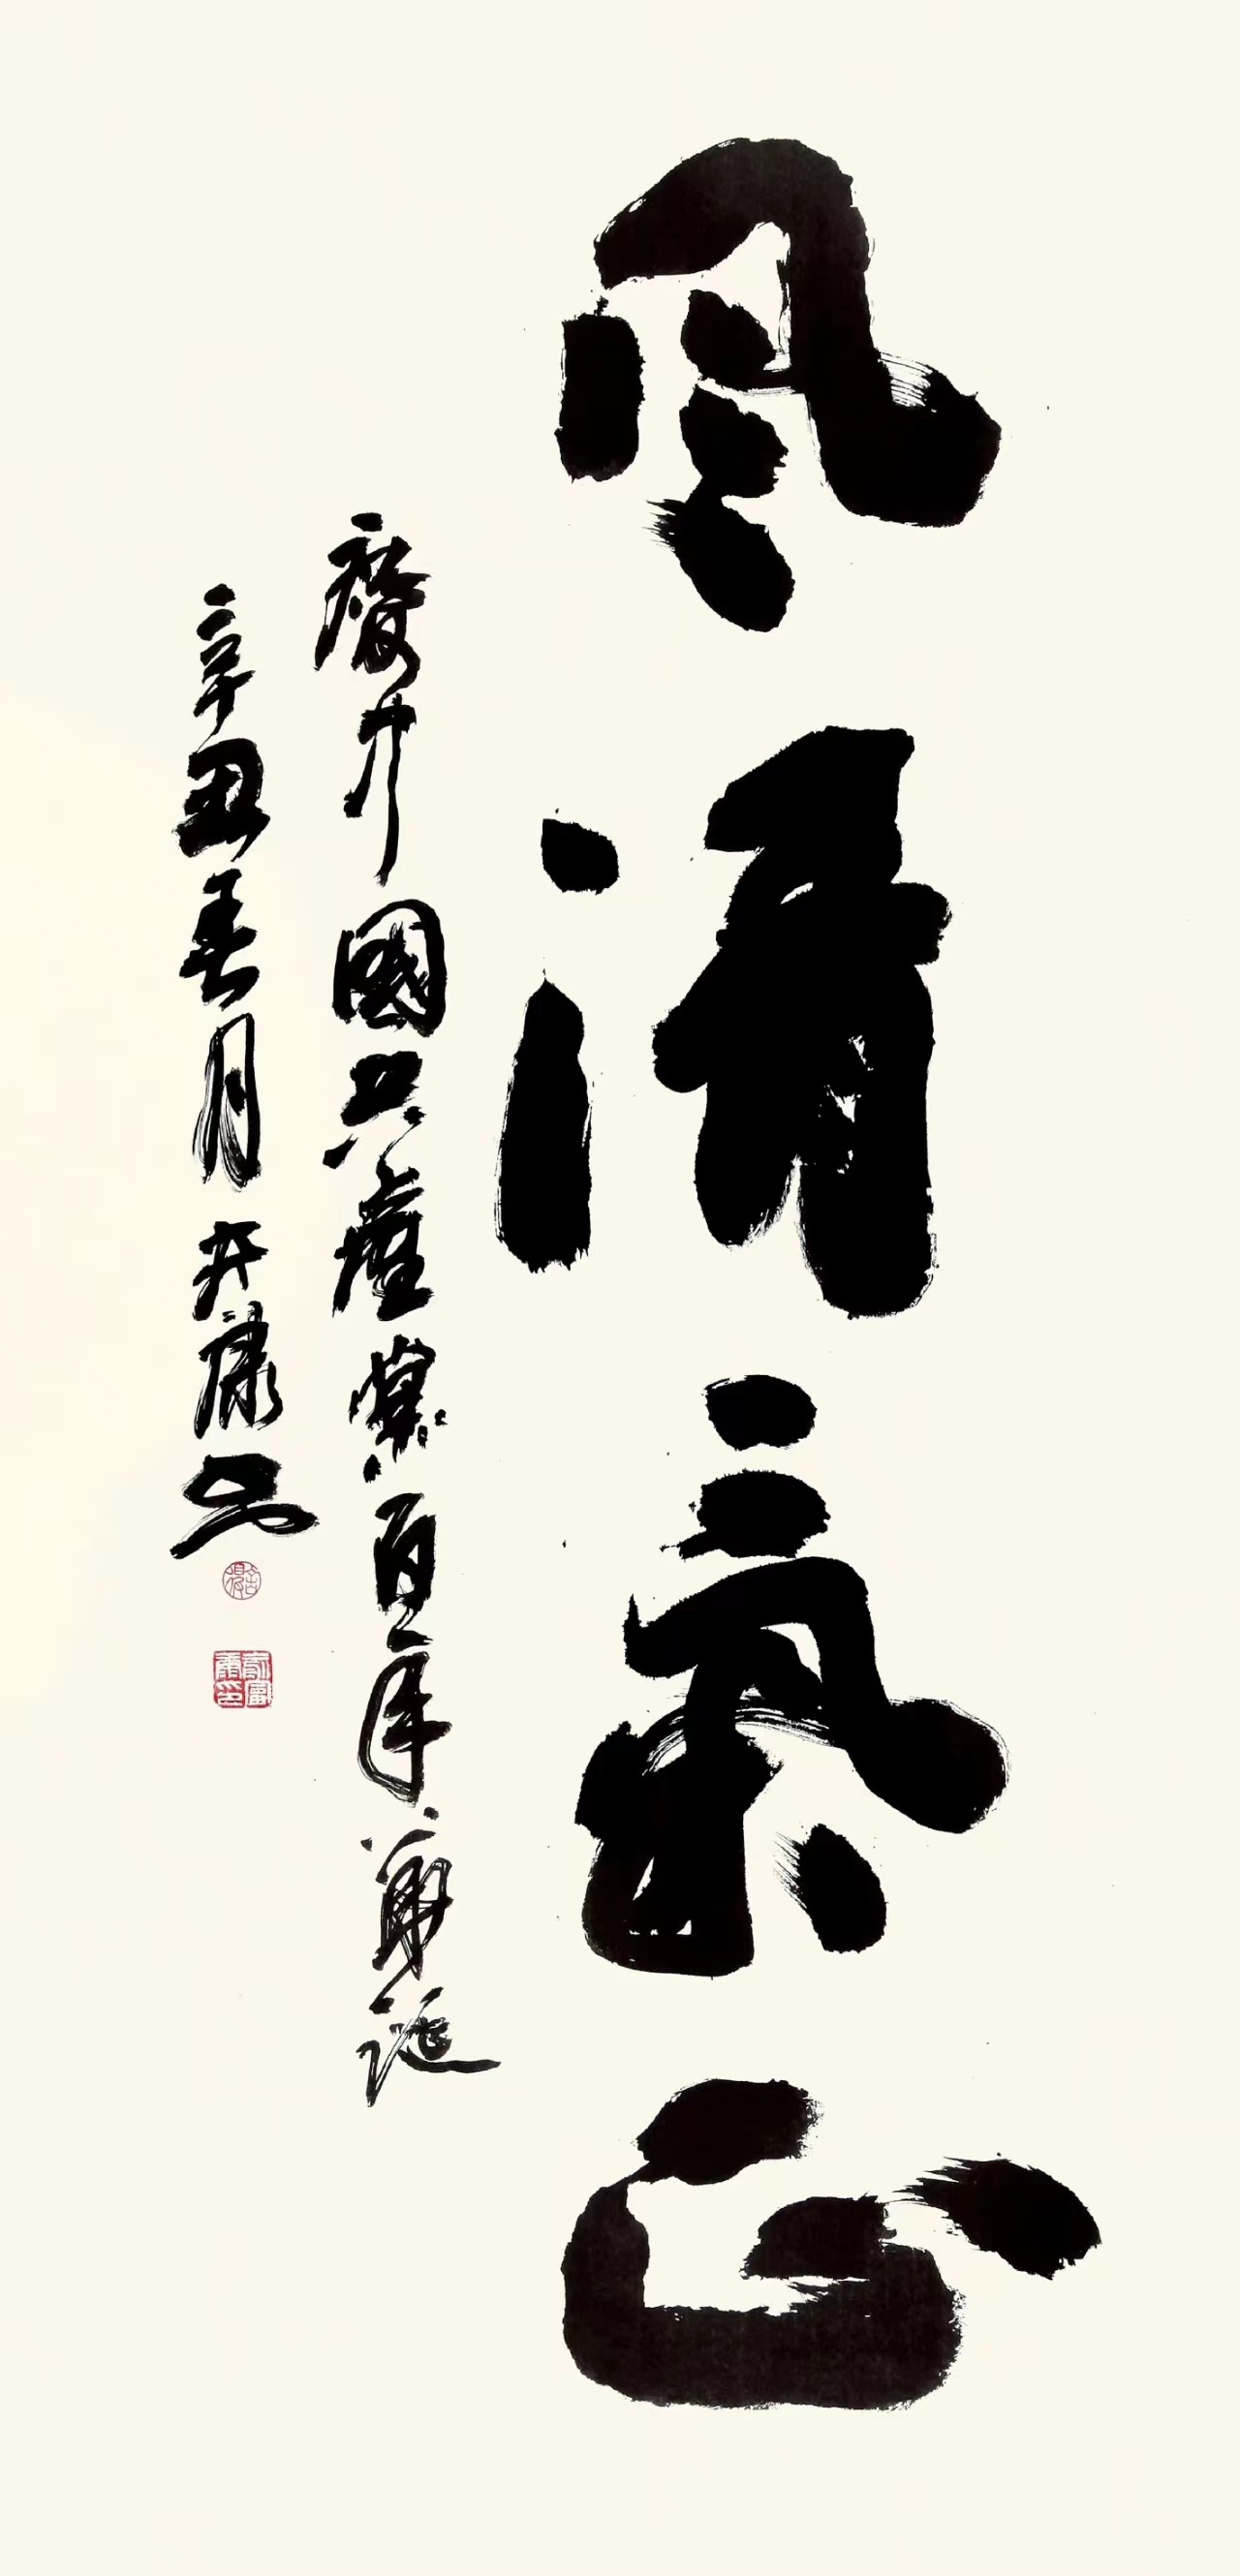 風清氣正
慶中國共產黨百年華誕
辛丑春月